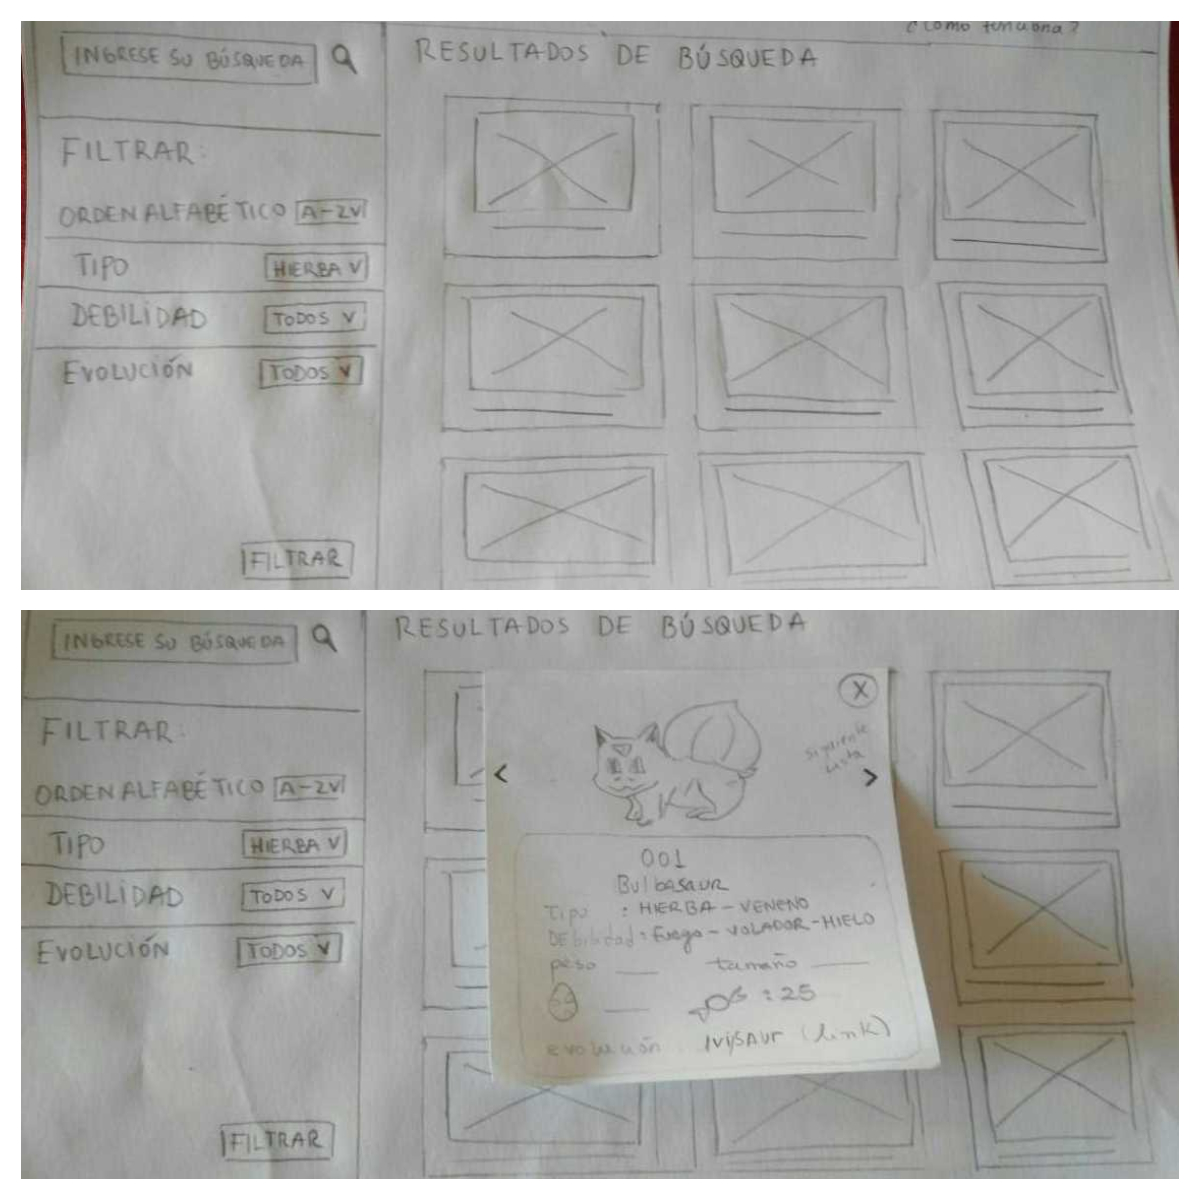 ¿Cómo funciona?
INGRESE SU BÚSQUEDA
RESULTADOS DE BÚSQUEDA
FILTRAR:
ORDEN ALFABÉTICO A-Z V
TIPO HIERBA V
DEBILIDAD TODOS V
EVOLUCIÓN TODOS V
FILTRAR
INGRESE SU BÚSQUEDA
RESULTADOS DE BÚSQUEDA
FILTRAR:
ORDEN ALFABÉTICO A-Z V
TIPO HIERBA V
DEBILIDAD TODOS V
EVOLUCIÓN TODOS V
FILTRAR
X
<
siguiente
lista
>
001
Bulbasaur
Tipo : HIERBA - VENENO
DEbilidad : Fuego - VOLADOR - HIELO
peso ___ tamaño ___
: 25
evolución : IVYSAUR (link)